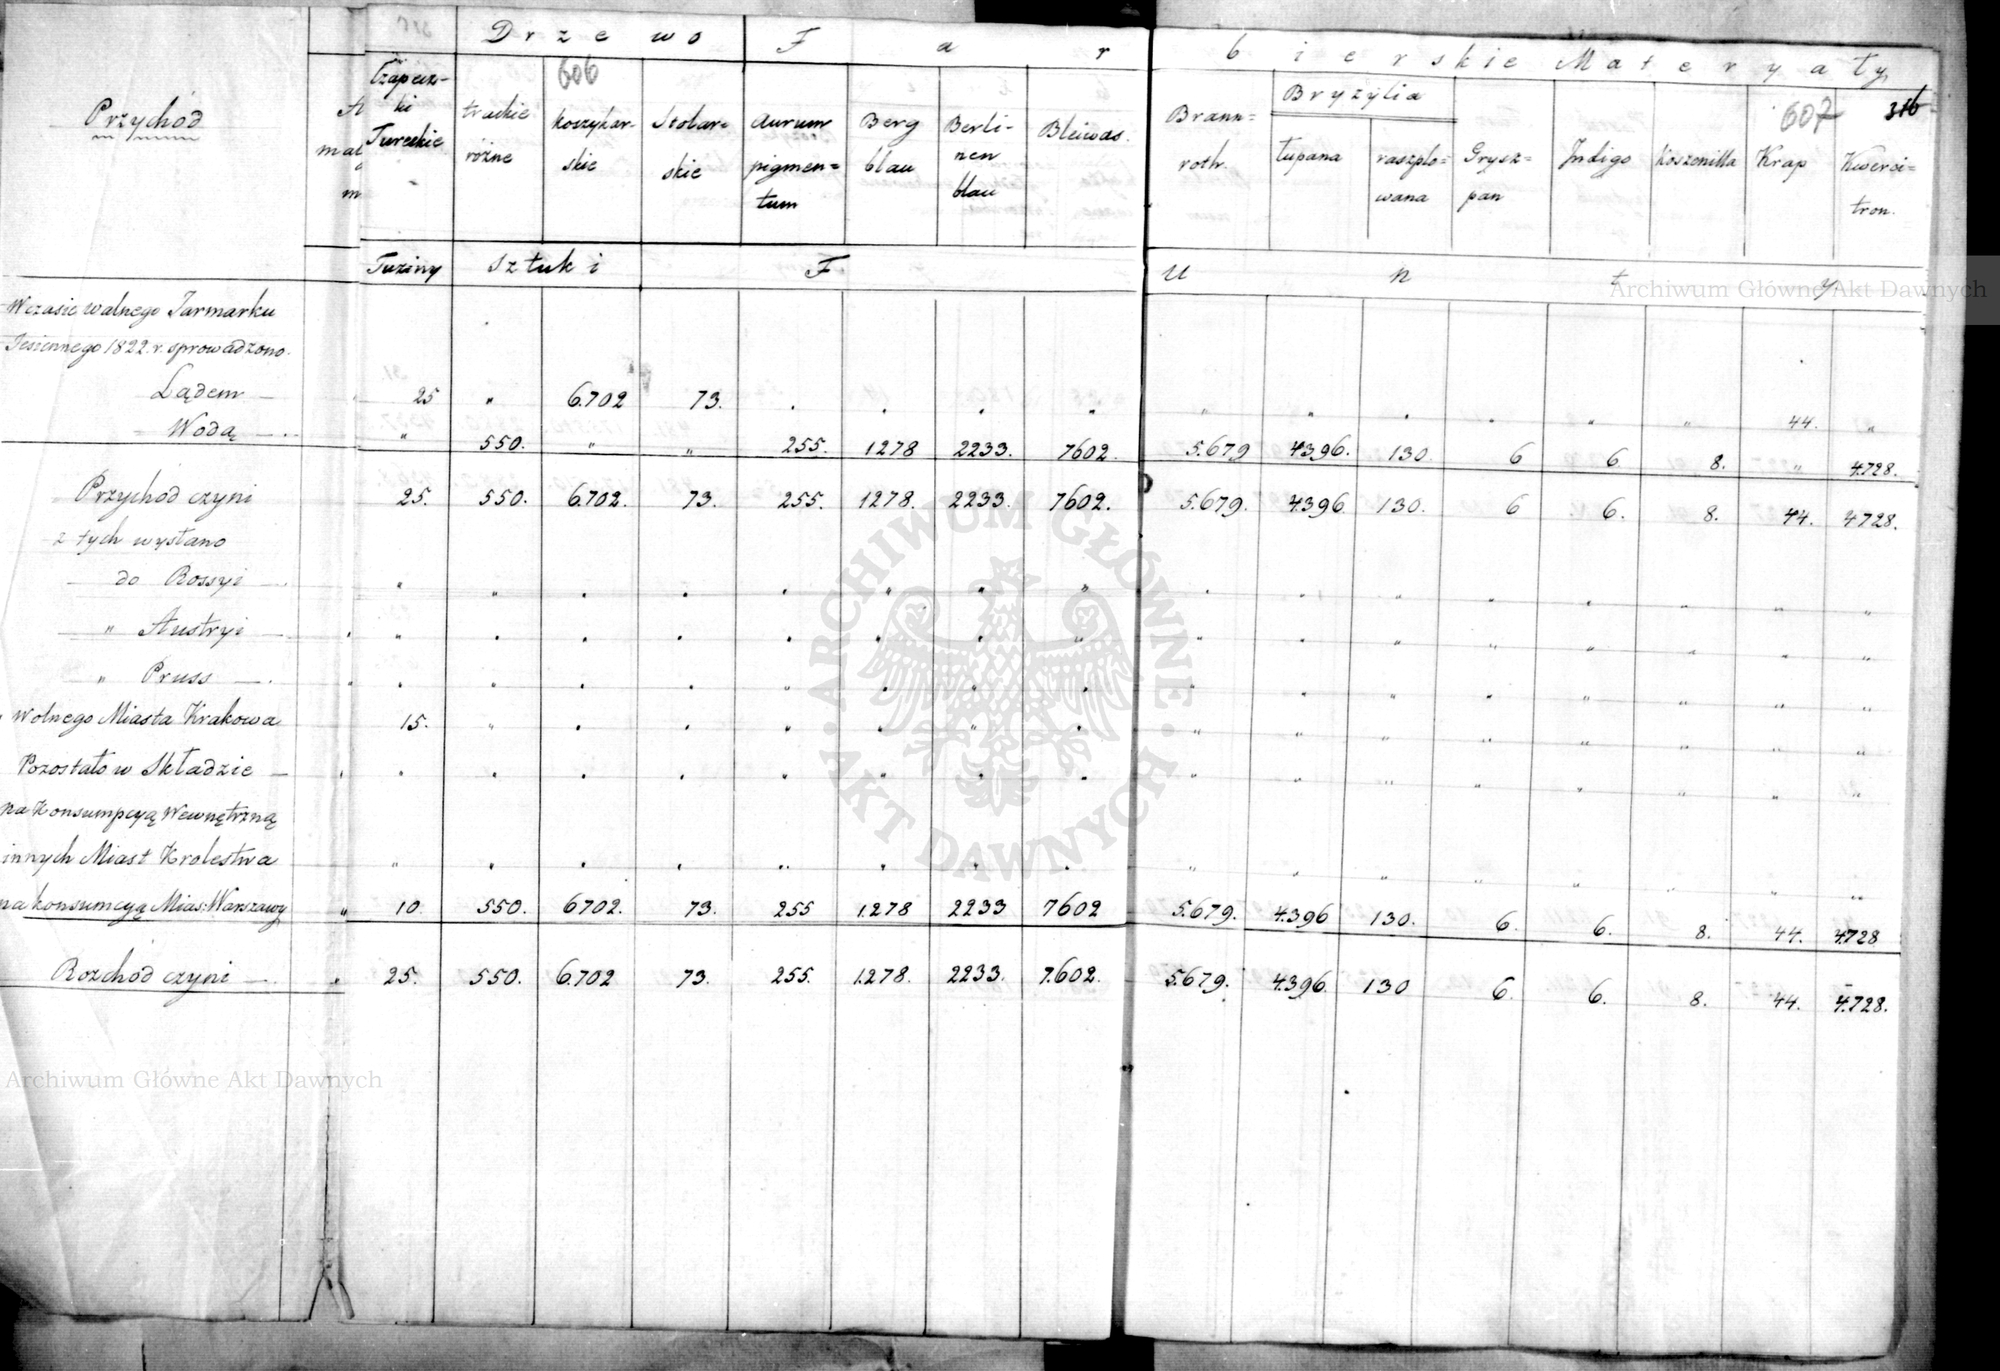 Drzewo Far bierskie Materyały
606 607 316
Przychód
Czapecz-
ki
Tureckie
trackie
różne
koszykar-
skie
Stolar-
skie
Aurum
pigmen=
tum
Berg
blau
Berli-
nen
blau
Bleiwas.
Braun=
roth.
Bryzylia
łupana
raszplo=
wana
Grysz=
pan
Indigo
Koszenilla
Krap
Kwerci=
tron.
Tuziny Sztuki F u n t y
Wczasie walnego Jarmarku
Jesiennego 1822. r. sprowadzono.
Lądem — 25 " 6.702 73. . . . . " " . . " " 44. "
Wodą — " 550. " " 255. 1278 2233. 7602. 5.679 4.396. 130. 6 6 8. " 4.728.
Przychód czyni 25. 550. 6.702. 73. 255. 1278. 2233. 7602. 5.679. 4.396 130. 6 6. 8. 44. 4.728.
z tych wysłano
do Rossyi —
" Austryi —
" Pruss —
" Wolnego Miasta Krakowa 15.
Pozostało w Składzie —
na Konsumpcyą Wewnętrzną
innych Miast Krolestwa
na konsumcyą Mias: Warszawy " 10 550. 6702. 73. 255 1.278 2233 7602 5.679. 4.396 130. 6. 6. 8. 44. 4.728
Rozchód czyni — 25. 550. 6.702 73. 255. 1.278. 2233. 7.602. 5.679. 4.396 130 6. 6. 8. 44. 4.728.
Archiwum Główne Akt Dawnych
Archiwum Główne Akt Dawnych
ARCHIWUM GŁÓWNE · AKT DAWNYCH ·